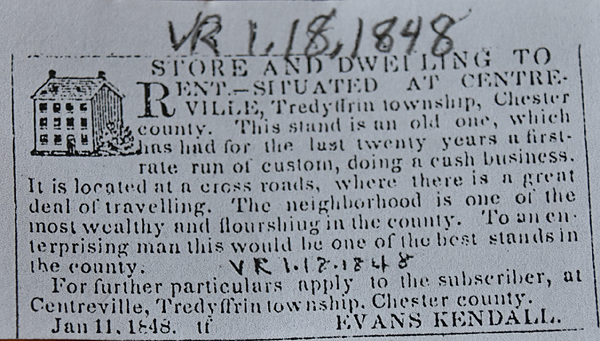 VR 1,18,1848
STORE AND DWELLING TO
RENT.—SITUATED AT CENTRE-
VILLE, Tredyffrin township, Chester
county. This stand is an old one, which
has had for the last twenty years a first-
rate run of custom, doing a cash business.
It is located at a cross roads, where there is a great
deal of travelling. The neighborhood is one of the
most wealthy and flourshiug in the county. To an en-
terprising man this would be one of the best stands in
the county. VR 1.18.1848
For further particulars apply to the subscriber, at
Centreville, Tredyffrin township. Chester county.
Jan 11, 1848. tf EVANS KENDALL.